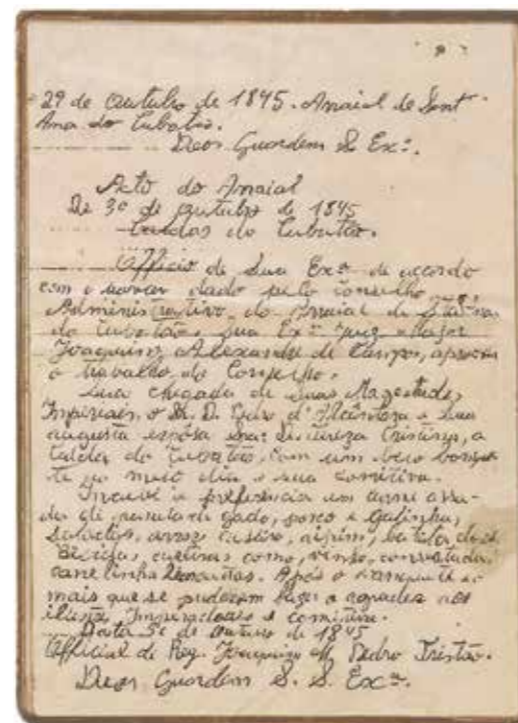 29 de Outubro de 1845. Arraial de Sant'
Ana do Cubatão.
Deos Guardem S. Exª.
Acto do Arraial
De 30 de Outubro de 1845
Caldas do Cubatão.
Officio de Sua Exª de accordo
com o dado pelo Conselho
Administrativo do Arraial de
do Cubatão, sua Exª Juiz Major
Joaquim Alexandre de Campos, aprova
o travalho do Conselho.
chegada de Suas Magestades
Imperiaes o Sr. D. Pedro d'Alcântara e sua
augusta espósa Snrª D. Tereza Cristina, a
Caldas do Cubatão, com um
te ao meio dia e sua comitiva.
a preferencia um
de gado, porco e galinha,
saladas, arroz aipim, batata doce
como, vinho,
canelinha Após o
mais que se puderam fazer e agradar aos
Imperadores e comitiva.
Data 30 de Outubro de 1845
Official de Reg. Joaquim M. Pedro Tristão.
Deos Guardem S. S. Exª.